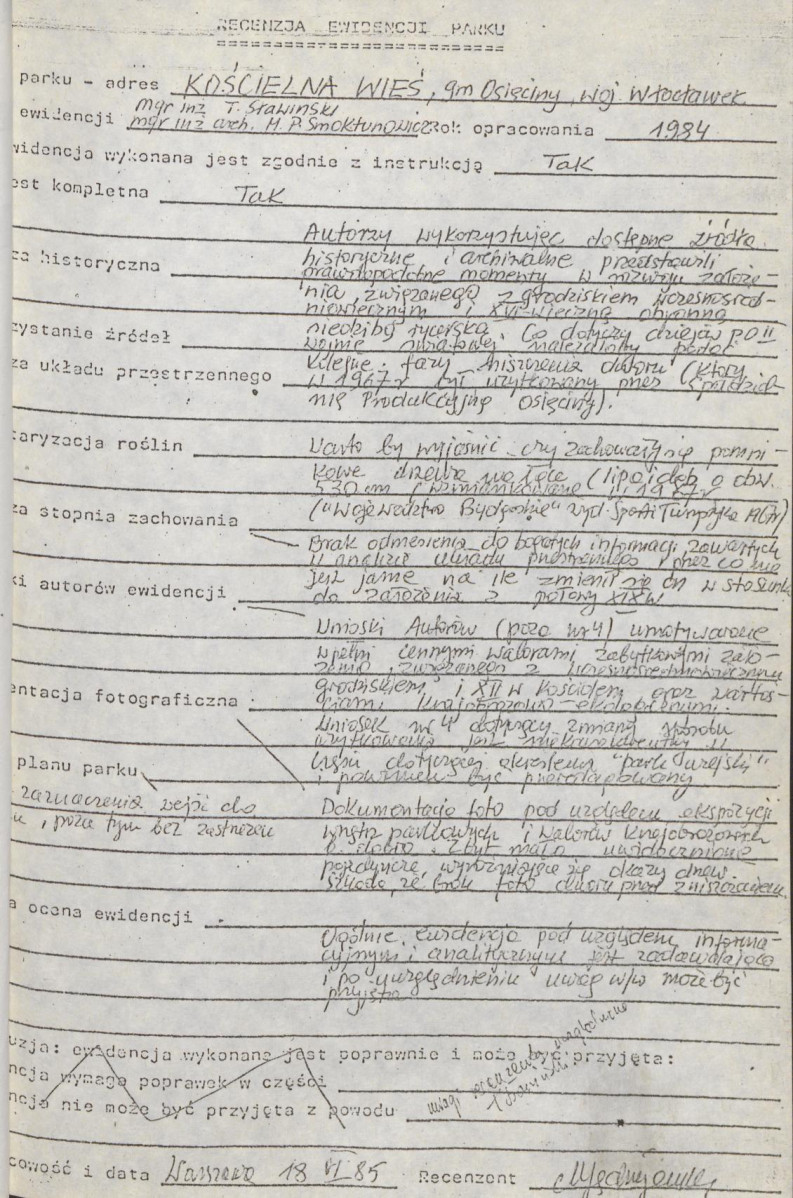 RECENZJA EWIDENCJI PARKU
==========================
parku - adres KOŚCIELNA WIEŚ, gm Osięciny, woj Włocławek
mgr inż T. Stawiński
ewidencji mgr inż arch. H. P. Smoktunowicz rok opracowania 1984
widencja wykonana jest zgodnie z instrukcją Tak
est kompletna Tak
Autorzy wykorzystując dostępne źródła
historyczne i archiwalne przedstawili
za historyczna prawdopodobne momenty w rozwoju założe-
nia, związanego z grodziskiem wczesnośred-
niowiecznym i XVI-wieczną obronną
siedzibą rycerską. Co dotyczy dziejów po II
zystanie źródeł wojnie światowej należałoby podać
kolejne fazy zniszczenia dworu (który
za układu przestrzennego w 1967 r był użytkowany przez Spółdziel-
nię Produkcyjną Osięciny).
taryzacja roślin Warto by wyjaśnić czy zachowały się pomni-
kowe drzewa na łące (lipa i dąb o obw.
530 cm) wzmiankowane w 1967 r
za stopnia zachowania ("Województwo Bydgoskie" wyd. Sport i Turystyka
Brak odniesienia do bogatych informacji zawartych
w analizie układu przestrzennego, przez co nie
ki autorów ewidencji jest jasne na ile zmienił się on w stosunku
do założenia z połowy XIX w
Wnioski Autorów (poza nr 4) umotywowane
w pełni cennymi walorami zabytkowymi zało-
żenia, związanego z wczesnośredniowiecznym
grodziskiem i XII w kościołem oraz wartoś-
entacja fotograficzna ciami krajobrazowo-ekologicznymi.
Wniosek nr 4 dotyczący zmiany sposobu
użytkowania jest w
planu parku części dotyczącej określenia "park wiejski"
i powinien być
zaznaczenia wejść do
, poza tym bez zastrzeżeń
Dokumentacja foto pod względem ekspozycji
wnętrz parkowych i walorów krajobrazowych
b. dobra. Zbyt mało uwidocznione
pojedyncze, wyróżniające się okazy drzew.
Szkoda, że brak foto dworu przed zniszczeniem.
a ocena ewidencji
Ogólnie, ewidencja pod względem informa-
cyjnym i analitycznym jest zadawalająca
i po uwzględnieniu uwag w/w może być
przyjęta
uzja: ewidencja wykonana jest poprawnie i może być przyjęta:
ncja wymaga poprawek w części
uwagi recenzenta uwzględniono
T. Stawiński
ncja nie może być przyjęta z powodu
cowość i data Warszawa 18 VI 85 Recenzent